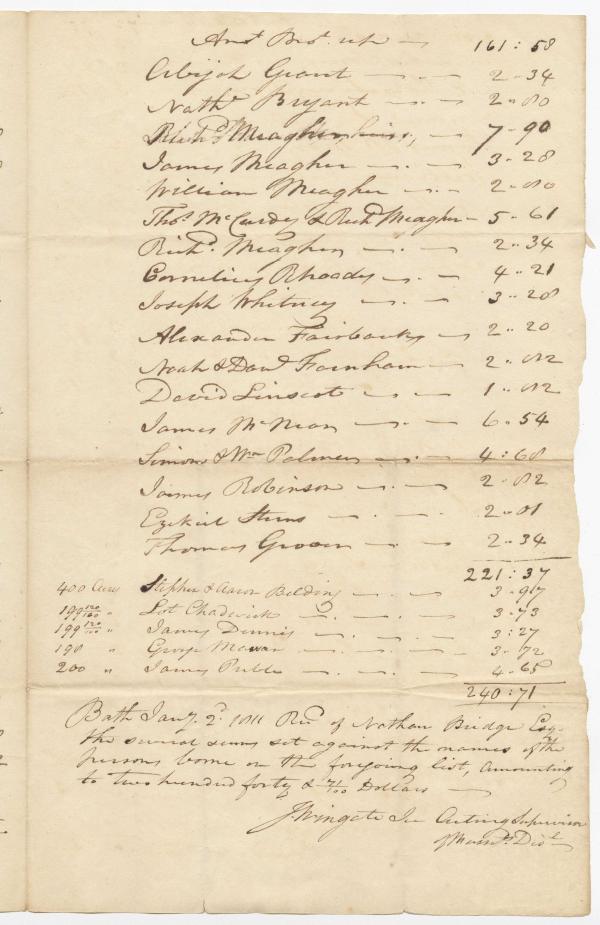 Amt. Brot. up — 161:58
Abijah Grant — 2-34
Nathl. Bryant — 2-80
Richd. Meagher, — 7-90
James Meagher — 3-28
William Meagher — 2-80
Thos. McCurdy & Richd. Meagher — 5-61
Richd. Meagher — 2-34
Cornelius Rhoades — 4-21
Joseph Whitney — 3-28
Alexander Fairbanks — 2-20
Noah & Danl. Farnham — 2-82
David Linscot — 1-82
James McNear — 6-54
Simon & Wm Palmer — 4:68
James Robinson — 2-82
Ezekiel Sterns — 2-81
Thomas Groves — 2-34
221:37
400 Acres Stephen & Aaron Belding — 3-97
199 120/160 " Lot Chadwick — 3-73
199 120/160 " James Dennis — 3:27
198 " George Mowar — 3-72
200 " James Preble — 4-65
240:71
Bath Jany. 2d. 1811 Recd. of Nathan Bridge Esq.
the several sums set against the names of the
persons borne on the foregoing list, amounting
to two hundred forty & 71/100 Dollars —
J. Wingate Jr Acting Supervisor
of Masss. Dist.